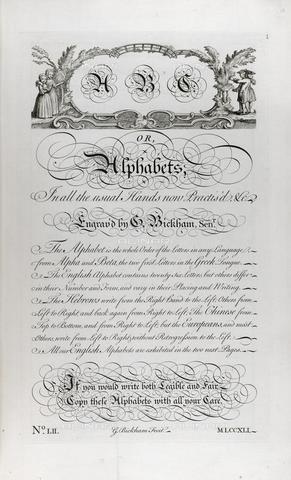 1
A B C
OR,
Alphabets,
In all the usual Hands now Practis'd &c.
Engrav'd by G. Bickham, Senr.
The Alphabet is the whole Order of the Letters in any Language,
from Alpha and Beta, the two first Letters in the Greek Tongue.
The English Alphabet contains twenty six Letters, but others differ
in their Number and Form, and vary in their Placing and Writing.
The Hebrews write from the Right Hand to the Left; Others from
Left to Right and back again from Right to Left; The Chinese from
Top to Bottom, and from Right to Left; but the Europeans, and most
Others, write from Left to Right, without Retrogression to the Left.
All our English Alphabets are exhibited in the two next Pages.
If you would write both Legible and Fair
Copy these Alphabets with all your Care.
No. LII.
G. Bickham Fecit
MDCCXLI.